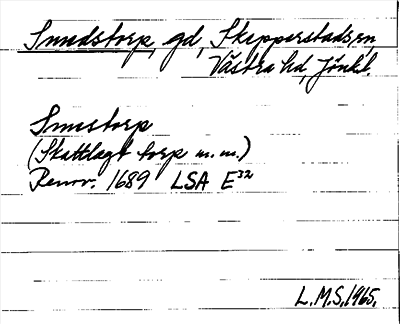 Smedstorp, gd, Skepperstads sn,
Västra hd, Jönk l.
Smestorp
(Skattlagt torp m.m.)
Renov. 1689 LSA E³²
L.M.S. 1965.